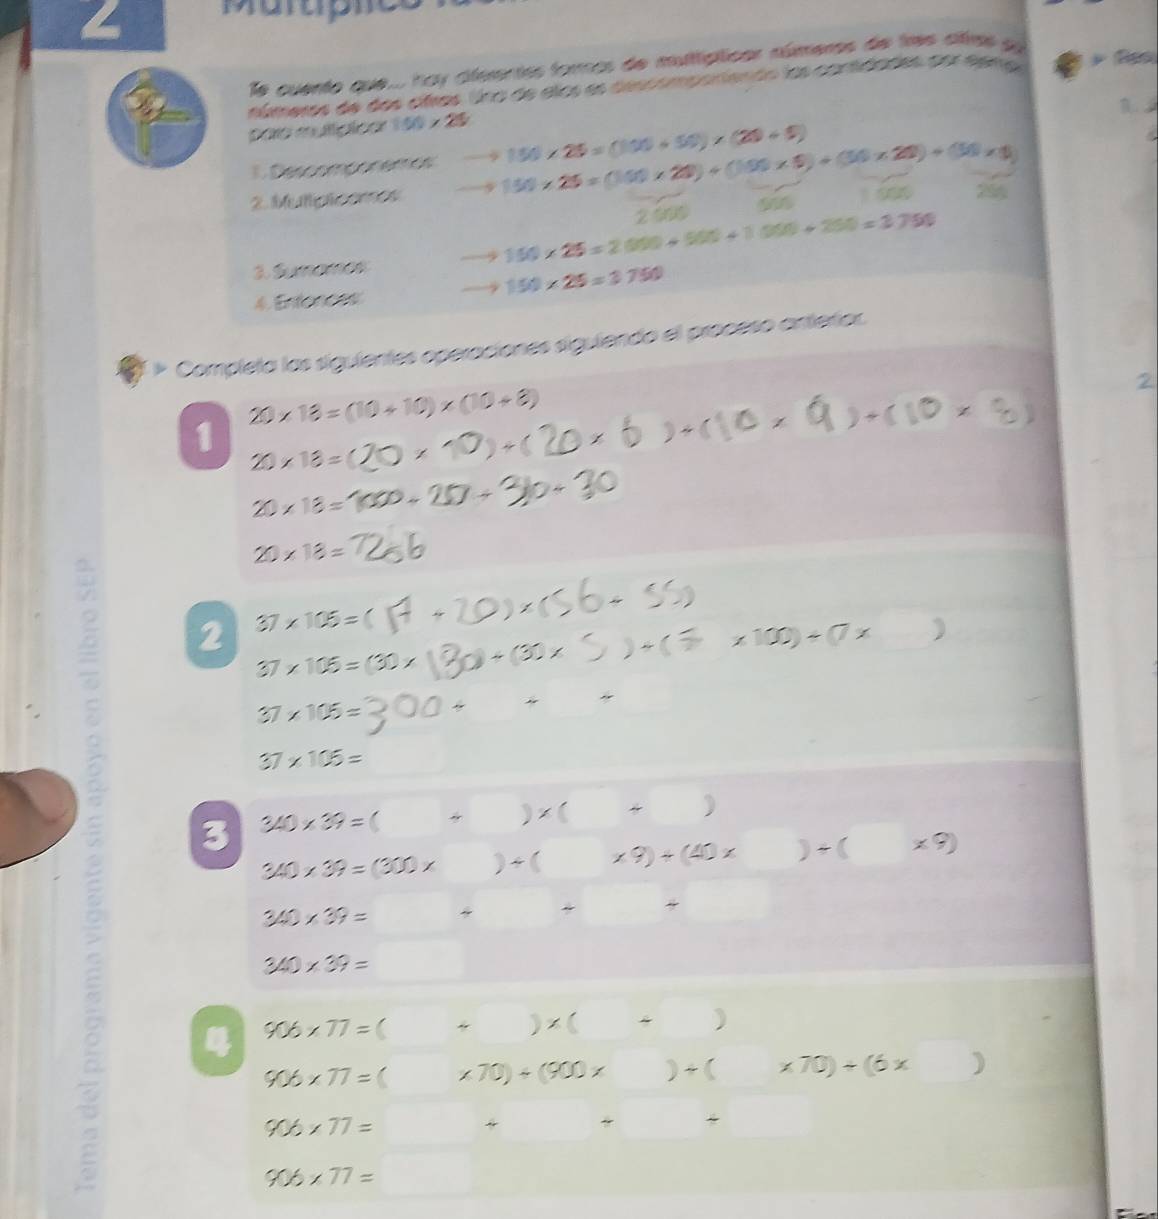 2
Te cuento que... hay diferentes formas de multiplicar números de tres cifras
números de dos cifras. Una de ellas es descomponiendo las cantidades, por
para multiplicar 150 × 25:
1. Descomponemos: → 150 × 25 = (100 + 50) × (20 + 5)
2. Multiplicamos: → 150 × 25 = (100 × 20) + (100 × 5) + (50 × 20) + (50 × 5)
2 000 500 1 000 250
3. Sumamos: → 150 × 25 = 2 000 + 500 + 1 000 + 250 = 3 750
4. Entonces: → 150 × 25 = 3 750
Completa las siguientes operaciones siguiendo el proceso anterior.
2
1 20 × 18 = (10 + 10) × (10 + 8)
20 × 18 = (20 × 10) + (20 × 6) + (10 × 9) + (10 × 8)
20 × 18 = 1000 + 257 + 310 + 30
20 × 18 =
2 37 × 105 = (17 + 20) × (56 + 55)
37 × 105 = (30 × 130) + (30 × 5) + (7 × 100) + (7 × )
37 × 105 = 300 + + +
37 × 105 =
3 340 × 39 = ( + ) × ( + )
340 × 39 = (300 × ) + ( × 9) + (40 × ) + ( × 9)
340 × 39 = + + +
340 × 39 =
4 906 × 77 = ( + ) × ( + )
906 × 77 = ( × 70) + (900 × ) + ( × 70) + (6 × )
906 × 77 = + + +
906 × 77 =
Tema del programa vigente sin apoyo en el libro SEP